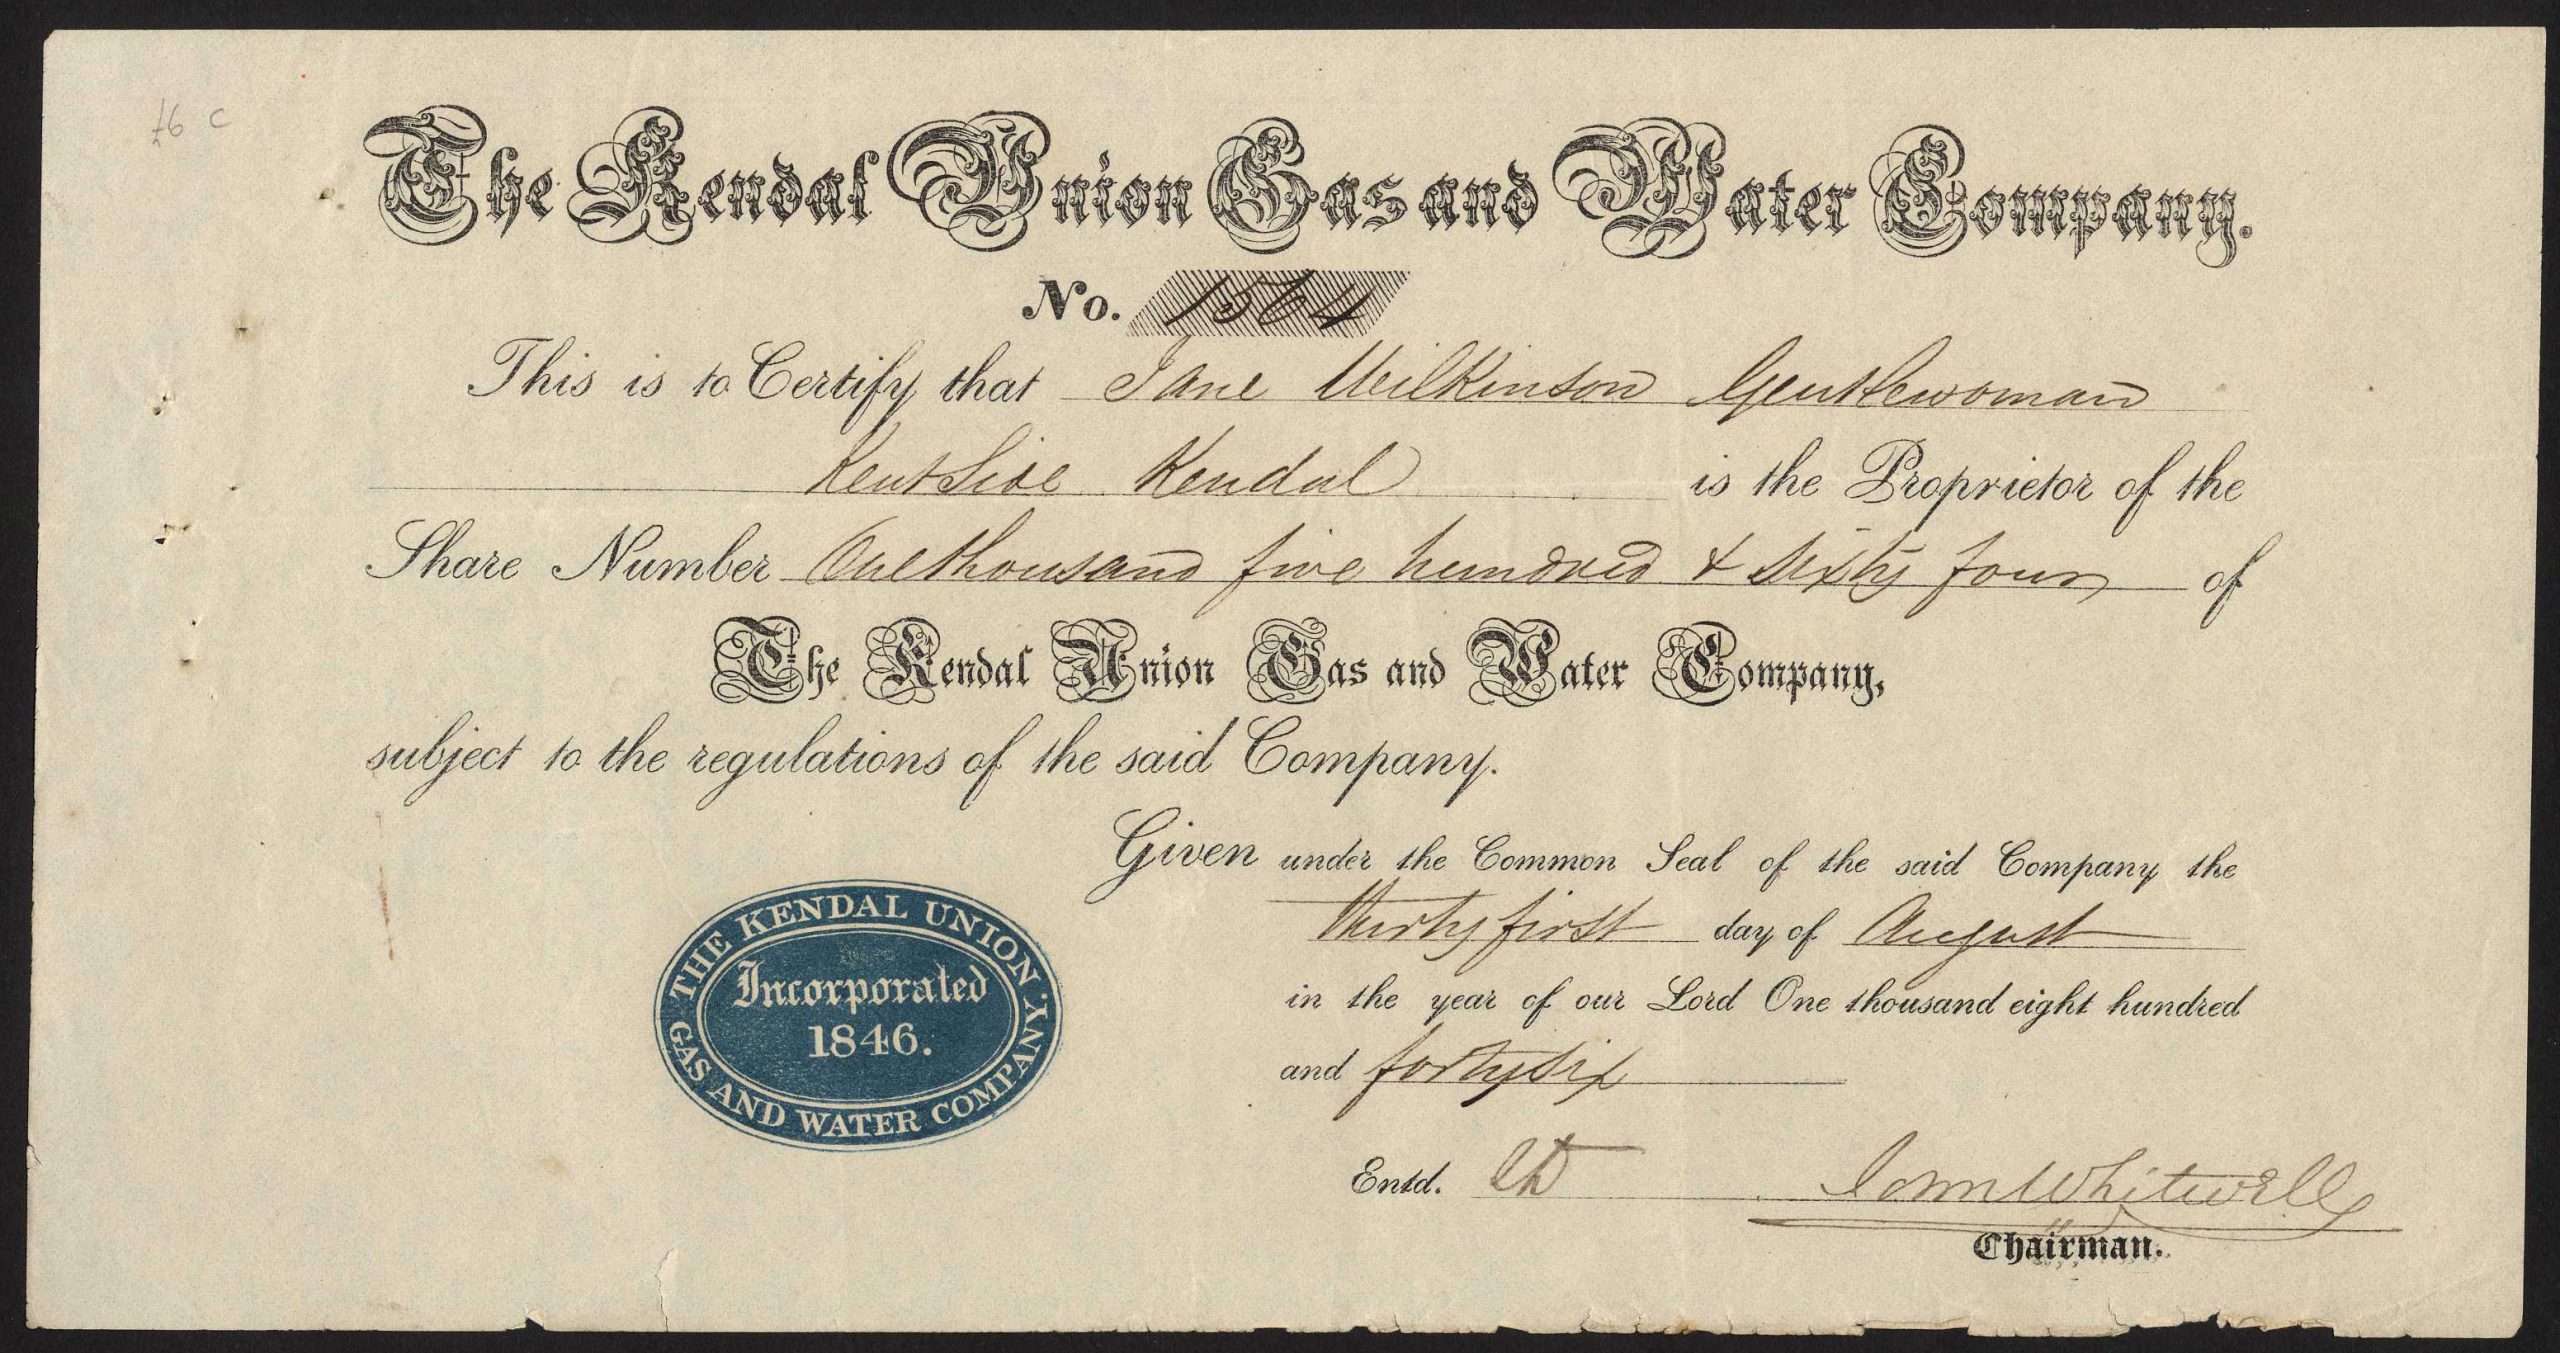 The Kendal Union Gas and Water Company.
No. 1564
This is to Certify that Jane Wilkinson Gentlewoman
Kent Side Kendal is the Proprietor of the
Share Number One thousand five hundred & sixty four of
The Kendal Union Gas and Water Company,
subject to the regulations of the said Company.
Given under the Common Seal of the said Company the
thirty first day of August
in the year of our Lord One thousand eight hundred
and forty six
THE KENDAL UNION
Incorporated
1846.
GAS AND WATER COMPANY.
Entd.
John Whitwell
Chairman.